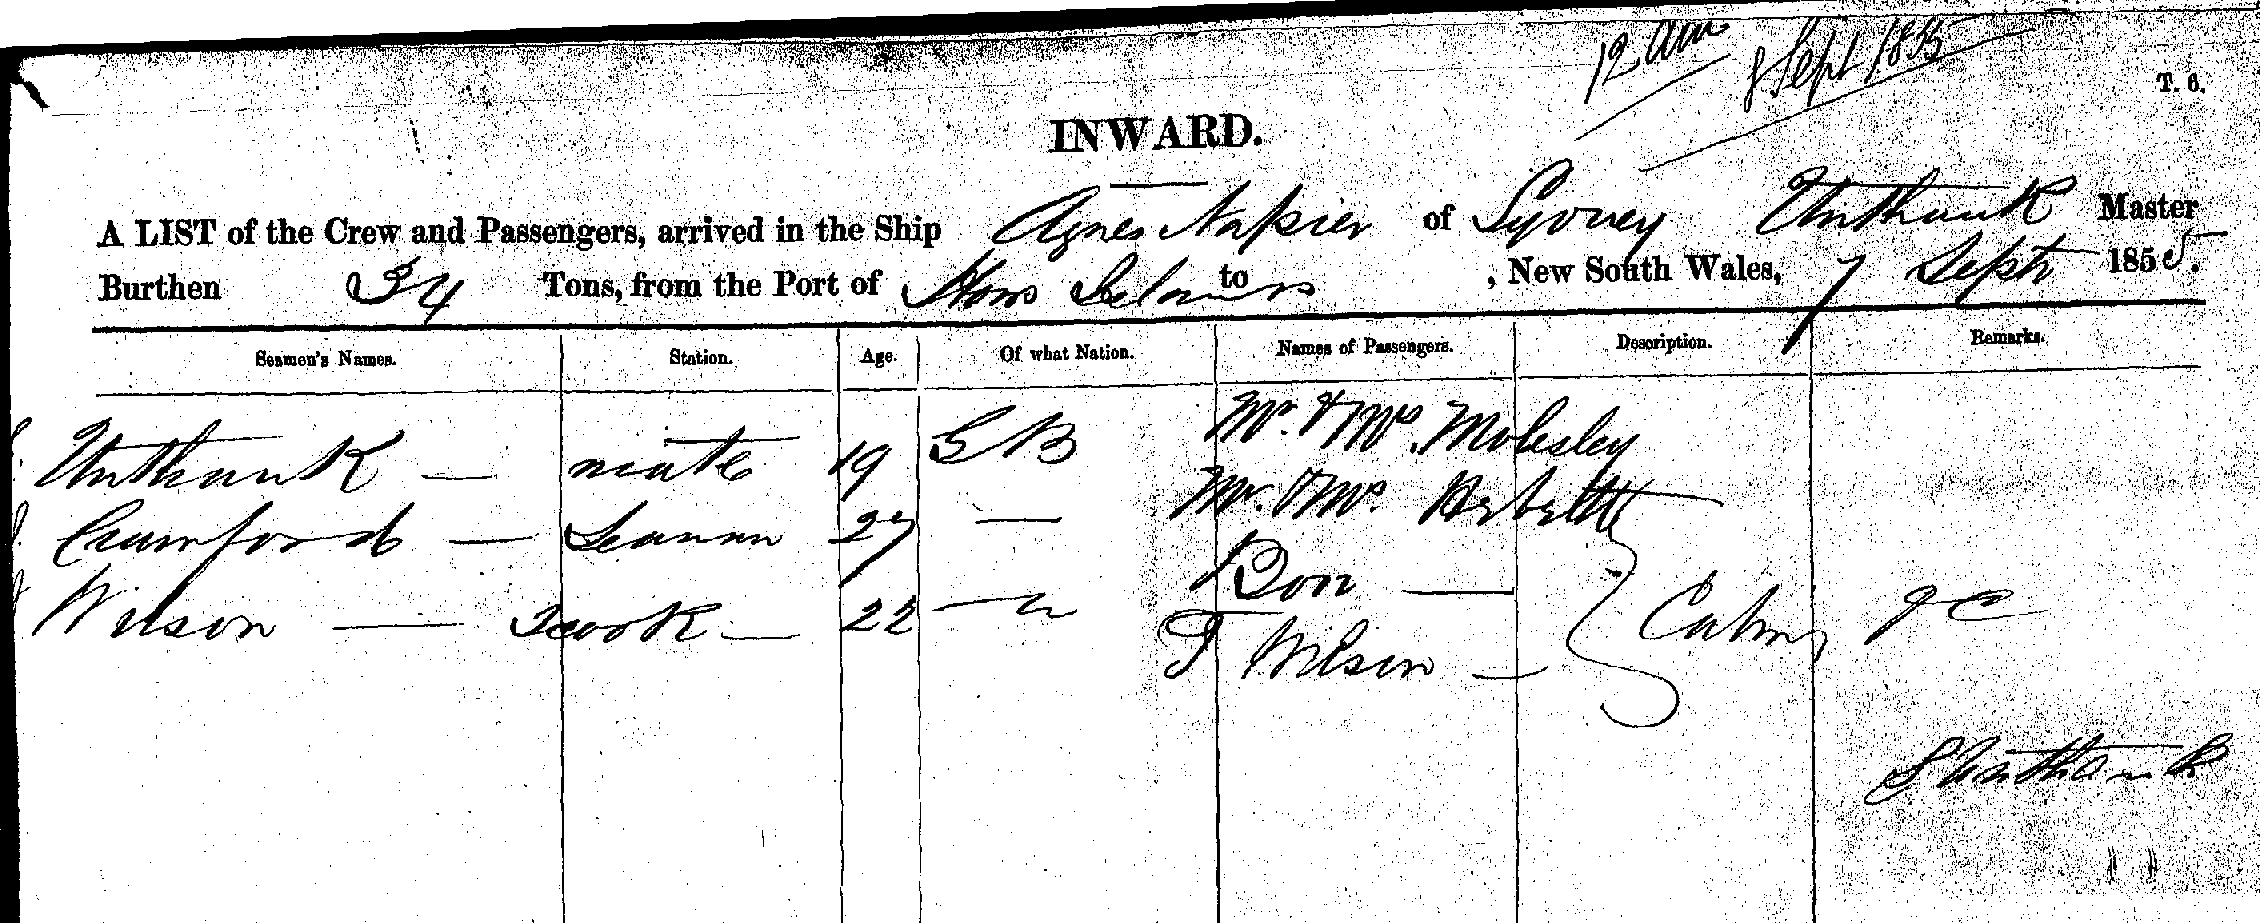 12 am 8 Sept 1855
T. 6.
INWARD.
A LIST of the Crew and Passengers, arrived in the Ship Agnes Napier of Sydney Unthank Master
Burthen 34 Tons, from the Port of Howe Islands to , New South Wales, 7 Sept 1855.
Seamen's Names. Station. Age. Of what Nation. Names of Passengers. Description. Remarks.
Unthank — mate 19 G B Mr. & Mrs. Mobsley
Crawford — Seaman 27 — Mr. & Mrs.
Wilson — cook — 22 — Bon —
T Wilson — Cabin
Unthank